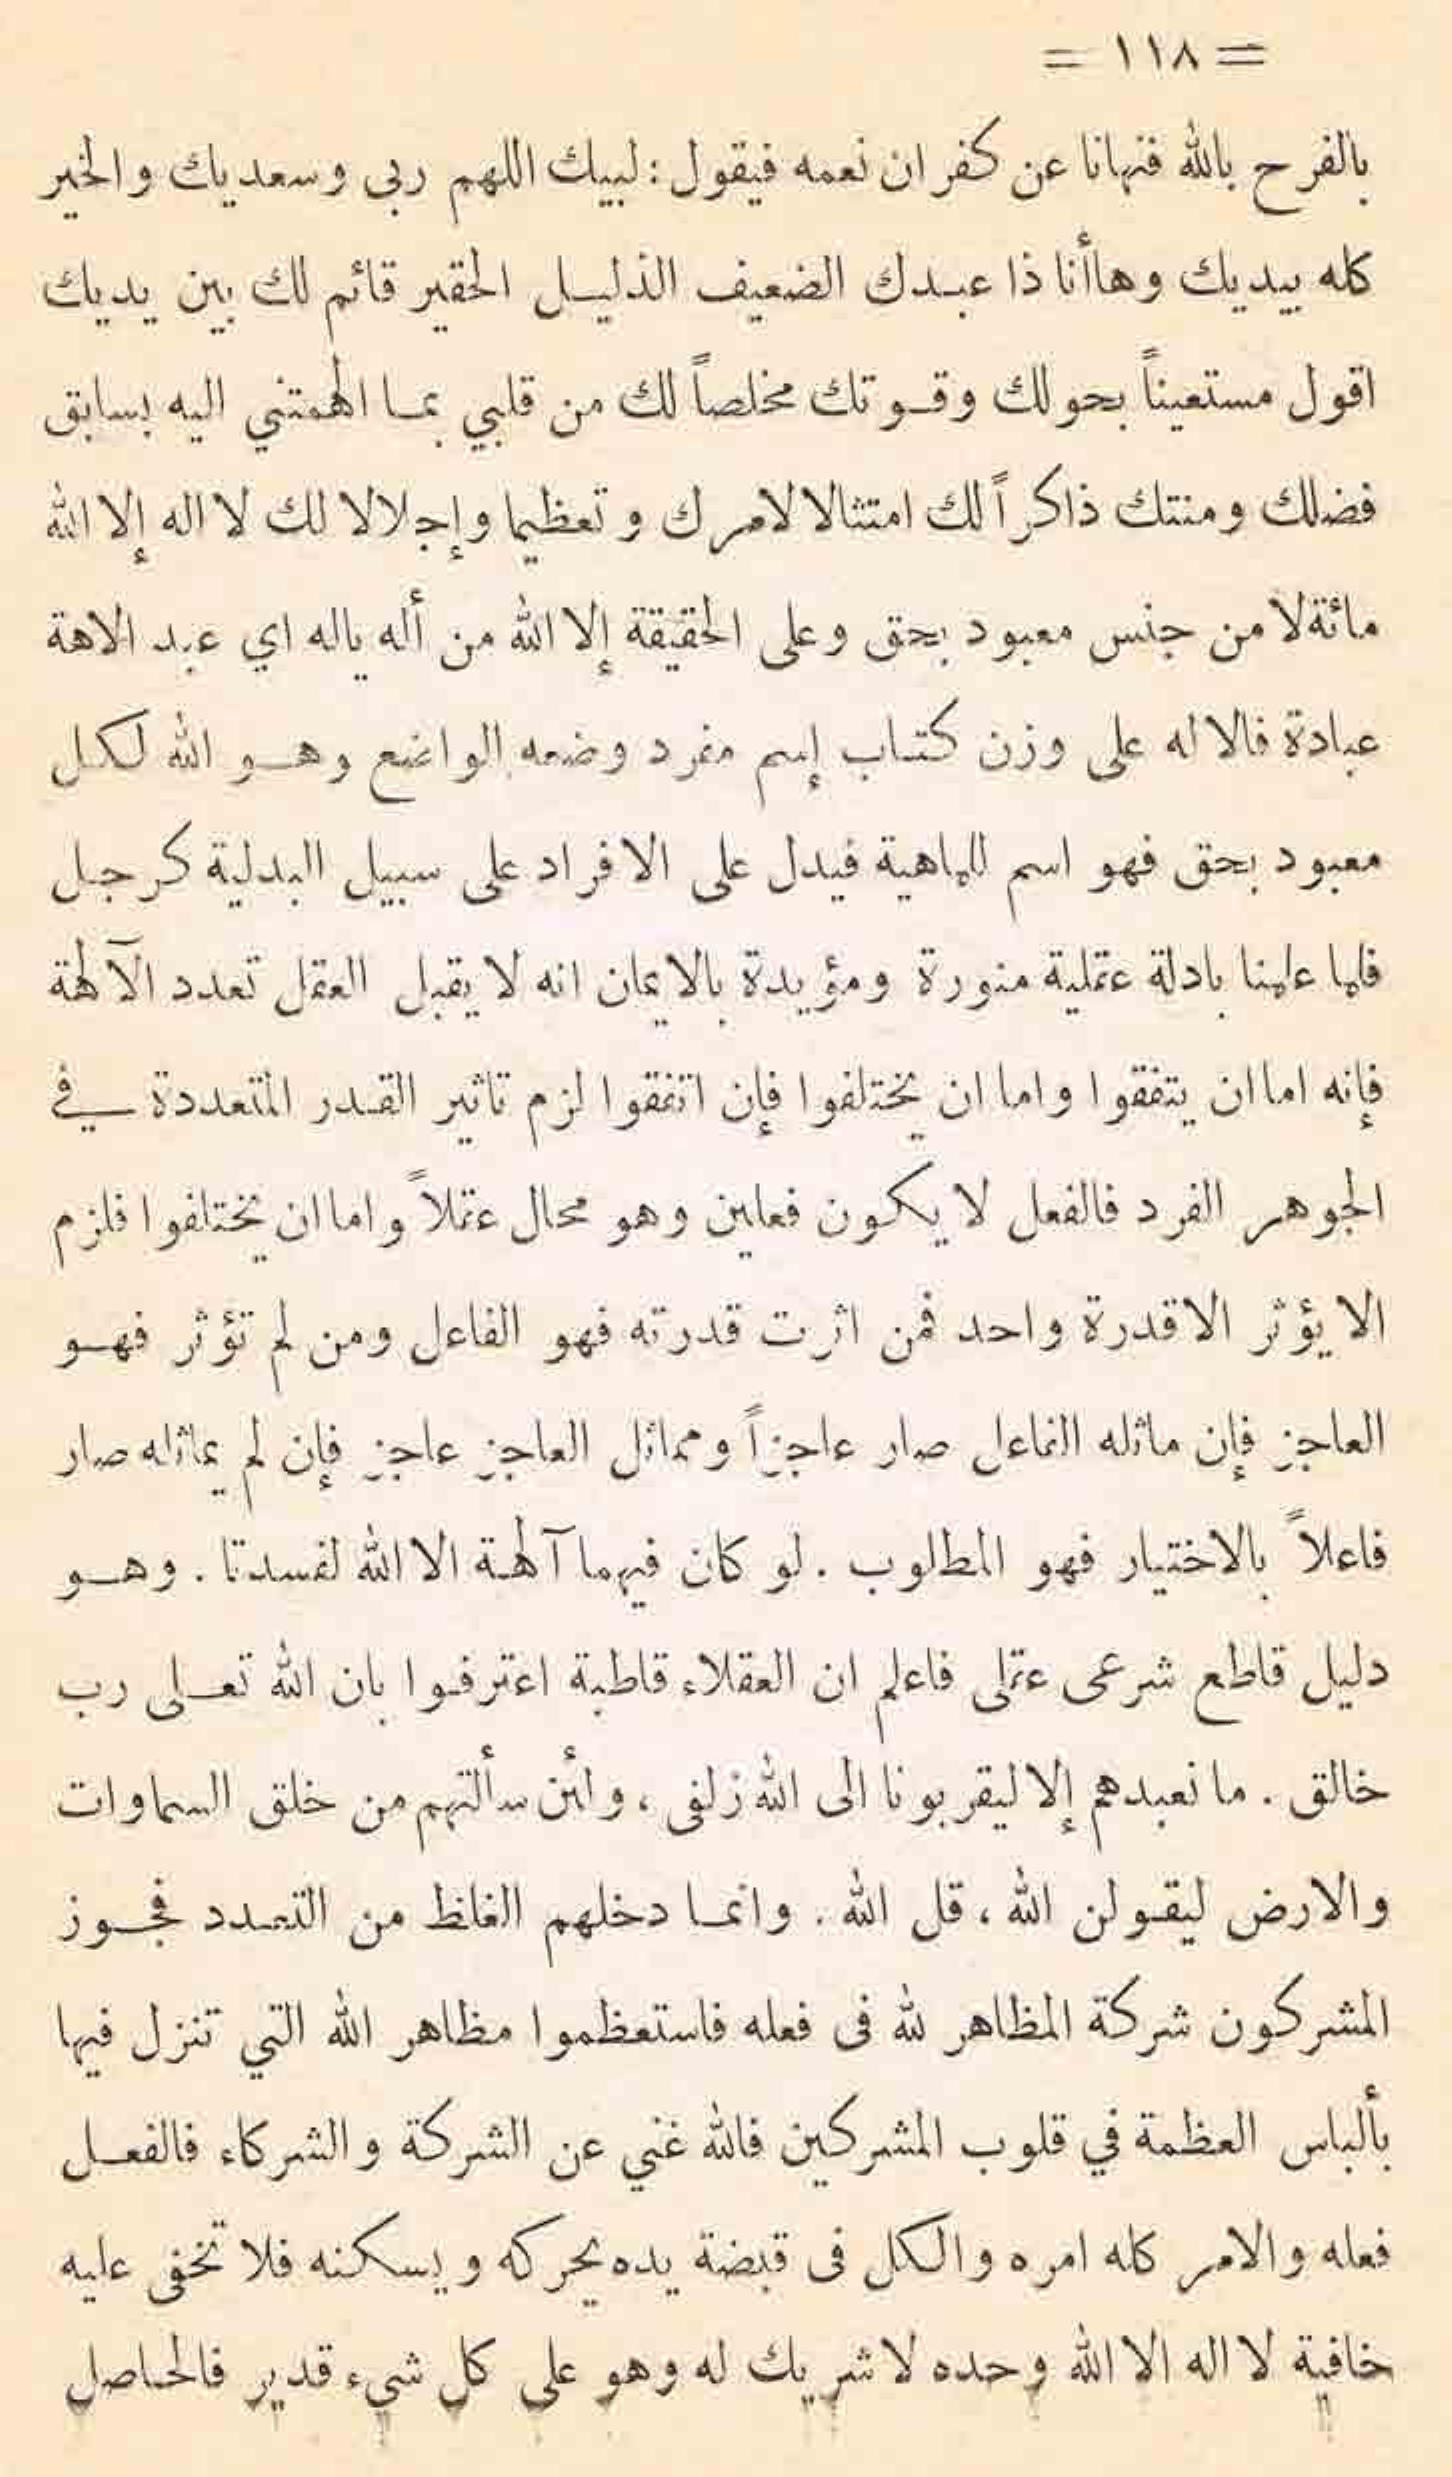 = ١١٨ =
بالفرح بالله فنهانا عن كفران نعمه فيقول : لبيك اللهم ربى وسعديك والخير
كله بيديك وهاأنا ذا عبدك الضعيف الذليل الحقير قائم لك بين يديك
اقول مستعيناً بحولك وقوتك مخلصاً لك من قلبي بما الهمتني اليه بسابق
فضلك ومنتك ذاكراً لك امتثالا لامرك وتعظيما وإجلالا لك لا اله إلا الله
مائة لا من جنس معبود بحق وعلى الحقيقة إلا الله من أله ياله اي عبد الاهة
عبادة فالاله على وزن كتاب إسم مفرد وضعه الواضع وهو الله لكل
معبود بحق فهو اسم للماهية فيدل على الافراد على سبيل البدلية كرجل
فلما علمنا بادلة عقلية منورة ومؤيدة بالايمان انه لا يقبل العقل تعدد الآلهة
فإنه اما ان يتفقوا واما ان يختلفوا فإن اتفقوا لزم تاثير القدر المتعددة في
الجوهر الفرد فالفعل لا يكون فعلين وهو محال عقلاً واما ان يختلفوا فلزم
الا يؤثر الا قدرة واحد فمن اثرت قدرته فهو الفاعل ومن لم تؤثر فهو
العاجز فإن ماثله الفاعل صار عاجزاً ومماثل العاجز عاجز فإن لم يماثله صار
فاعلاً بالاختيار فهو المطلوب . لو كان فيهما آلهة الا الله لفسدتا . وهو
دليل قاطع شرعى عقلى فاعلم ان العقلاء قاطبة اعترفوا بان الله تعلى رب
خالق . ما نعبدهم إلا ليقربونا الى الله زلفى ، ولئن سألتهم من خلق السماوات
والارض ليقولن الله ، قل الله . وانما دخلهم الغلظ من التعدد فجوز
المشركون شركة المظاهر لله فى فعله فاستعظموا مظاهر الله التي تنزل فيها
بألباس العظمة في قلوب المشركين فالله غني عن الشركة والشركاء فالفعل
فعله والامر كله امره والكل فى قبضة يده يحركه ويسكنه فلا تخفى عليه
خافية لا اله الا الله وحده لا شريك له وهو على كل شيء قدير فالحاصل